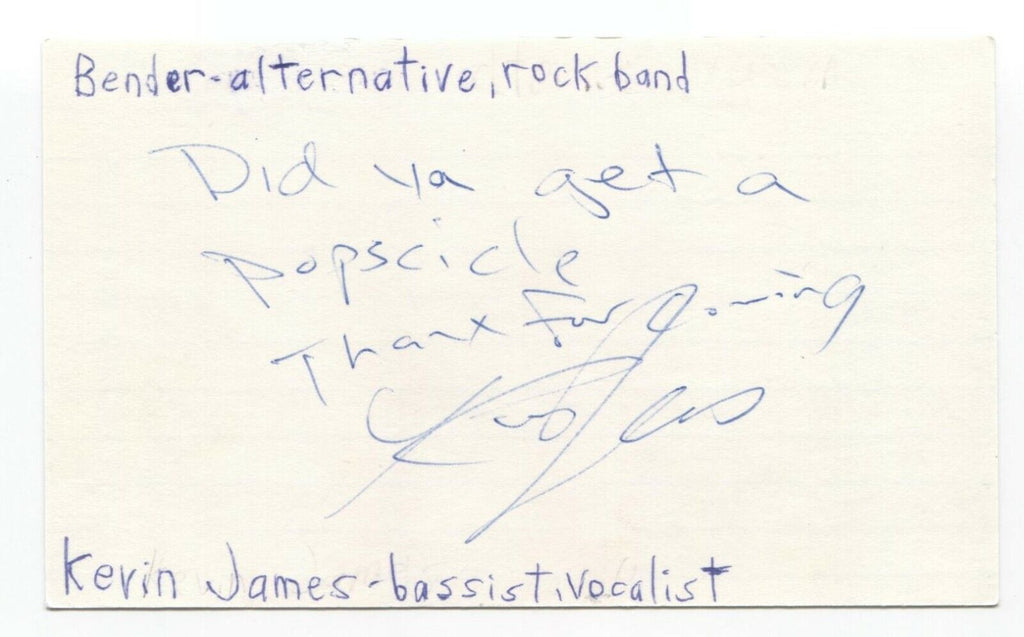 Bender-alternative, rock band
Did ya get a
popscicle
Thanx For
Kevin James-bassist, vocalist